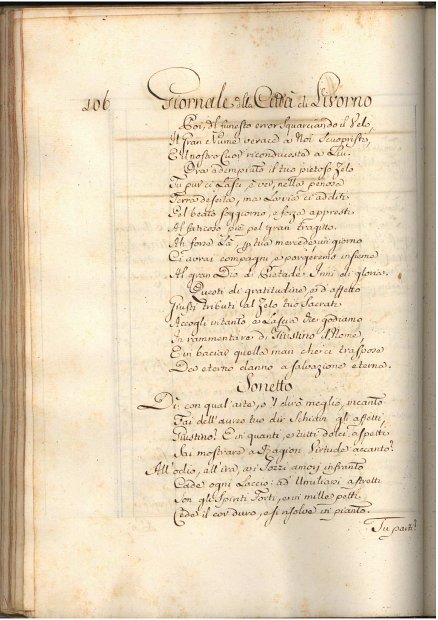 106 Giornale della Città di Livorno
Poi, del funesto error squarciando il Velo,
Il Gran Nume verace a Noi scuopristi,
E il nostro Cuor riconducesti a Lui.
Ora adempiuto il tuo pietoso Zelo
Tu pur ci Lasci, è ver, nella penosa
Terra deserta, ma La via ci additi
Pel beato soggiorno, e forza appresti
Al faticoso piè pel gran tragitto.
Ah forse Là tua mercede un giorno
Ci avrai compagni, e porgeremo insieme
Al gran Dio di Pietade Inni di gloria.
Questi di gratitudine, e d'affetto
Giusti tributi al Zelo tuo Sacrati
Accogli intanto, e Lascia che godiamo
In rammentare di Giustino il Nome,
E in baciar quella man che ci traspose
Da eterno danno a salvazione eterna.
Sonetto
Dì, con qual'arte, o 'l dirò meglio, incanto
Fai dell'aureo tuo dir gli affetti,
Giustino? E in quanti, e tutti dolci, aspetti
Sai mostrare a Ragion Virtude accanto?
All'odio, all'ira, ai sozzi amori infranto
Cade ogni Laccio: ad umiliarsi astretti
Son gli Spiriti forti, e in mille petti
Cede il cor duro, e si risolve in pianto.
Tu parti?